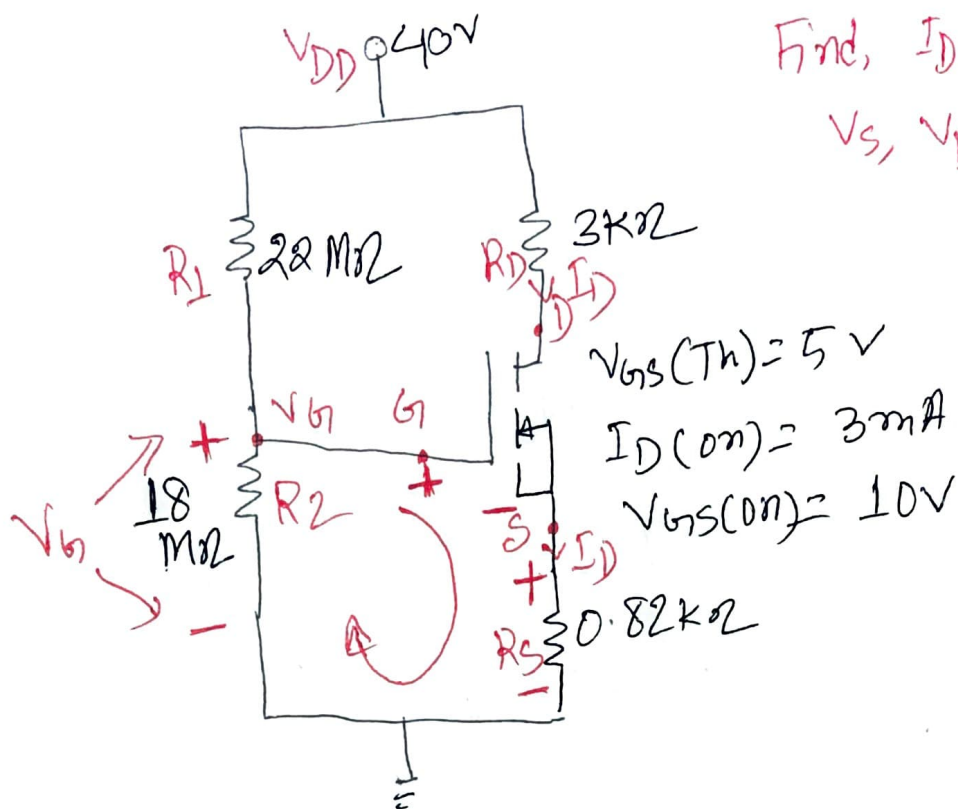 VDD 40V
Find, ID
VS,
R1 22 MΩ
RD 3KΩ
ID
D
VGS(Th) = 5 V
ID(on) = 3mA
VGS(on) = 10V
VG G
+
+
VG
18 MΩ
R2
-
S
ID
+
-
RS 0.82kΩ
-